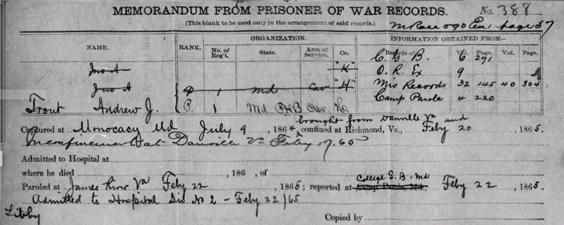 No. 388
MEMORANDUM FROM PRISONER OF WAR RECORDS.
(This blank to be used only in the arrangement of said records.)
page 57
ORGANIZATION.
INFORMATION OBTAINED FROM—
NAME.
RANK.
No. of Reg't.
State.
Arm of Service.
Co.
Records of
Vol.
Page.
Vol.
Page.
Jno A "K" C. B. B. 6 291
D. R. Ex 9
Jno A P 1 Md Cav "H" Mis Records 32 145 40 304
Trout Andrew J. P. 1 Md PHB Cav. Camp Parole 4 220
brought from Danville Va and
Captured at Monocacy Md July 9, 1864, confined at Richmond, Va., Feby 20, 1865.
In confinement at Danville Va Feby 17, 65
Admitted to Hospital at
where he died, 186 , of
College G. B. Md
Paroled at James River Va Feby 22, 1865; reported at Camp Parole, Md., Feby 22, 1865.
Admitted to Hospital Div No 2 - Feb 22/65
Libby
Copied by